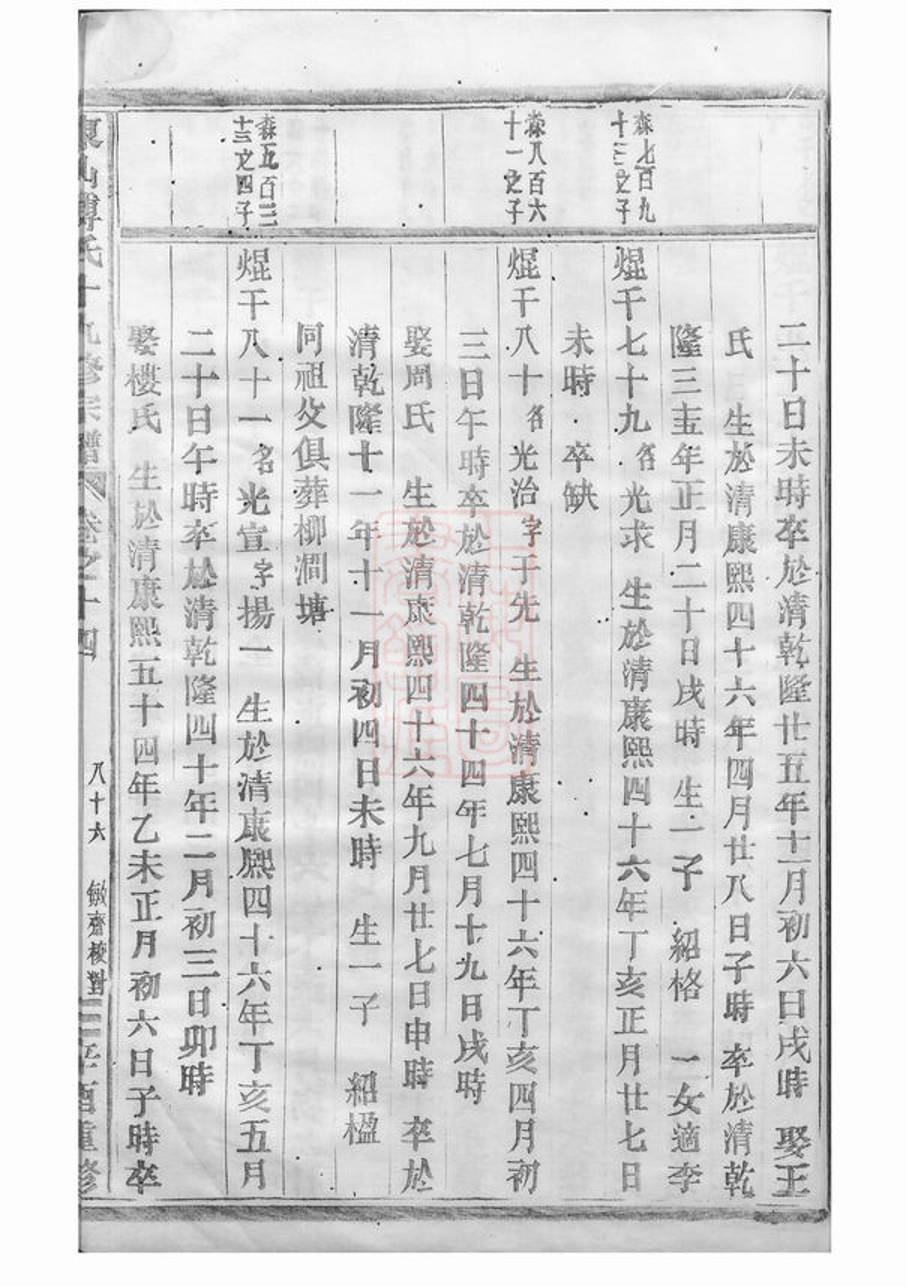 二十日未時卒於清乾隆廿五年十一月初六日戌時 娶王
氏 生於清康熙四十六年四月廿八日子時 卒於清乾
隆三十五年正月二十日戌時 生一子 紹格 一女適李
森七百九
十三之子
焜千七十九 名光求 生於清康熙四十六年丁亥正月廿七日
未時 卒缺
森八百六
十一之子
焜千八十 名光治 字于先 生於清康熙四十六年丁亥四月初
三日午時卒於清乾隆四十四年七月十九日戌時
娶周氏 生於清康熙四十六年九月廿七日申時 卒於
清乾隆十一年十一月初四日未時 生一子 紹楹
同祖父俱葬柳澗塘
森五百三
十三之四子
焜千八十一 名光宣 字揚一 生於清康熙四十六年丁亥五月
二十日午時卒於清乾隆四十年二月初三日卯時
娶樓氏 生於清康熙五十四年乙未正月初六日子時卒
東山傅氏十九修宗譜 卷之十四 八十六 敏齋校對 辛酉重修